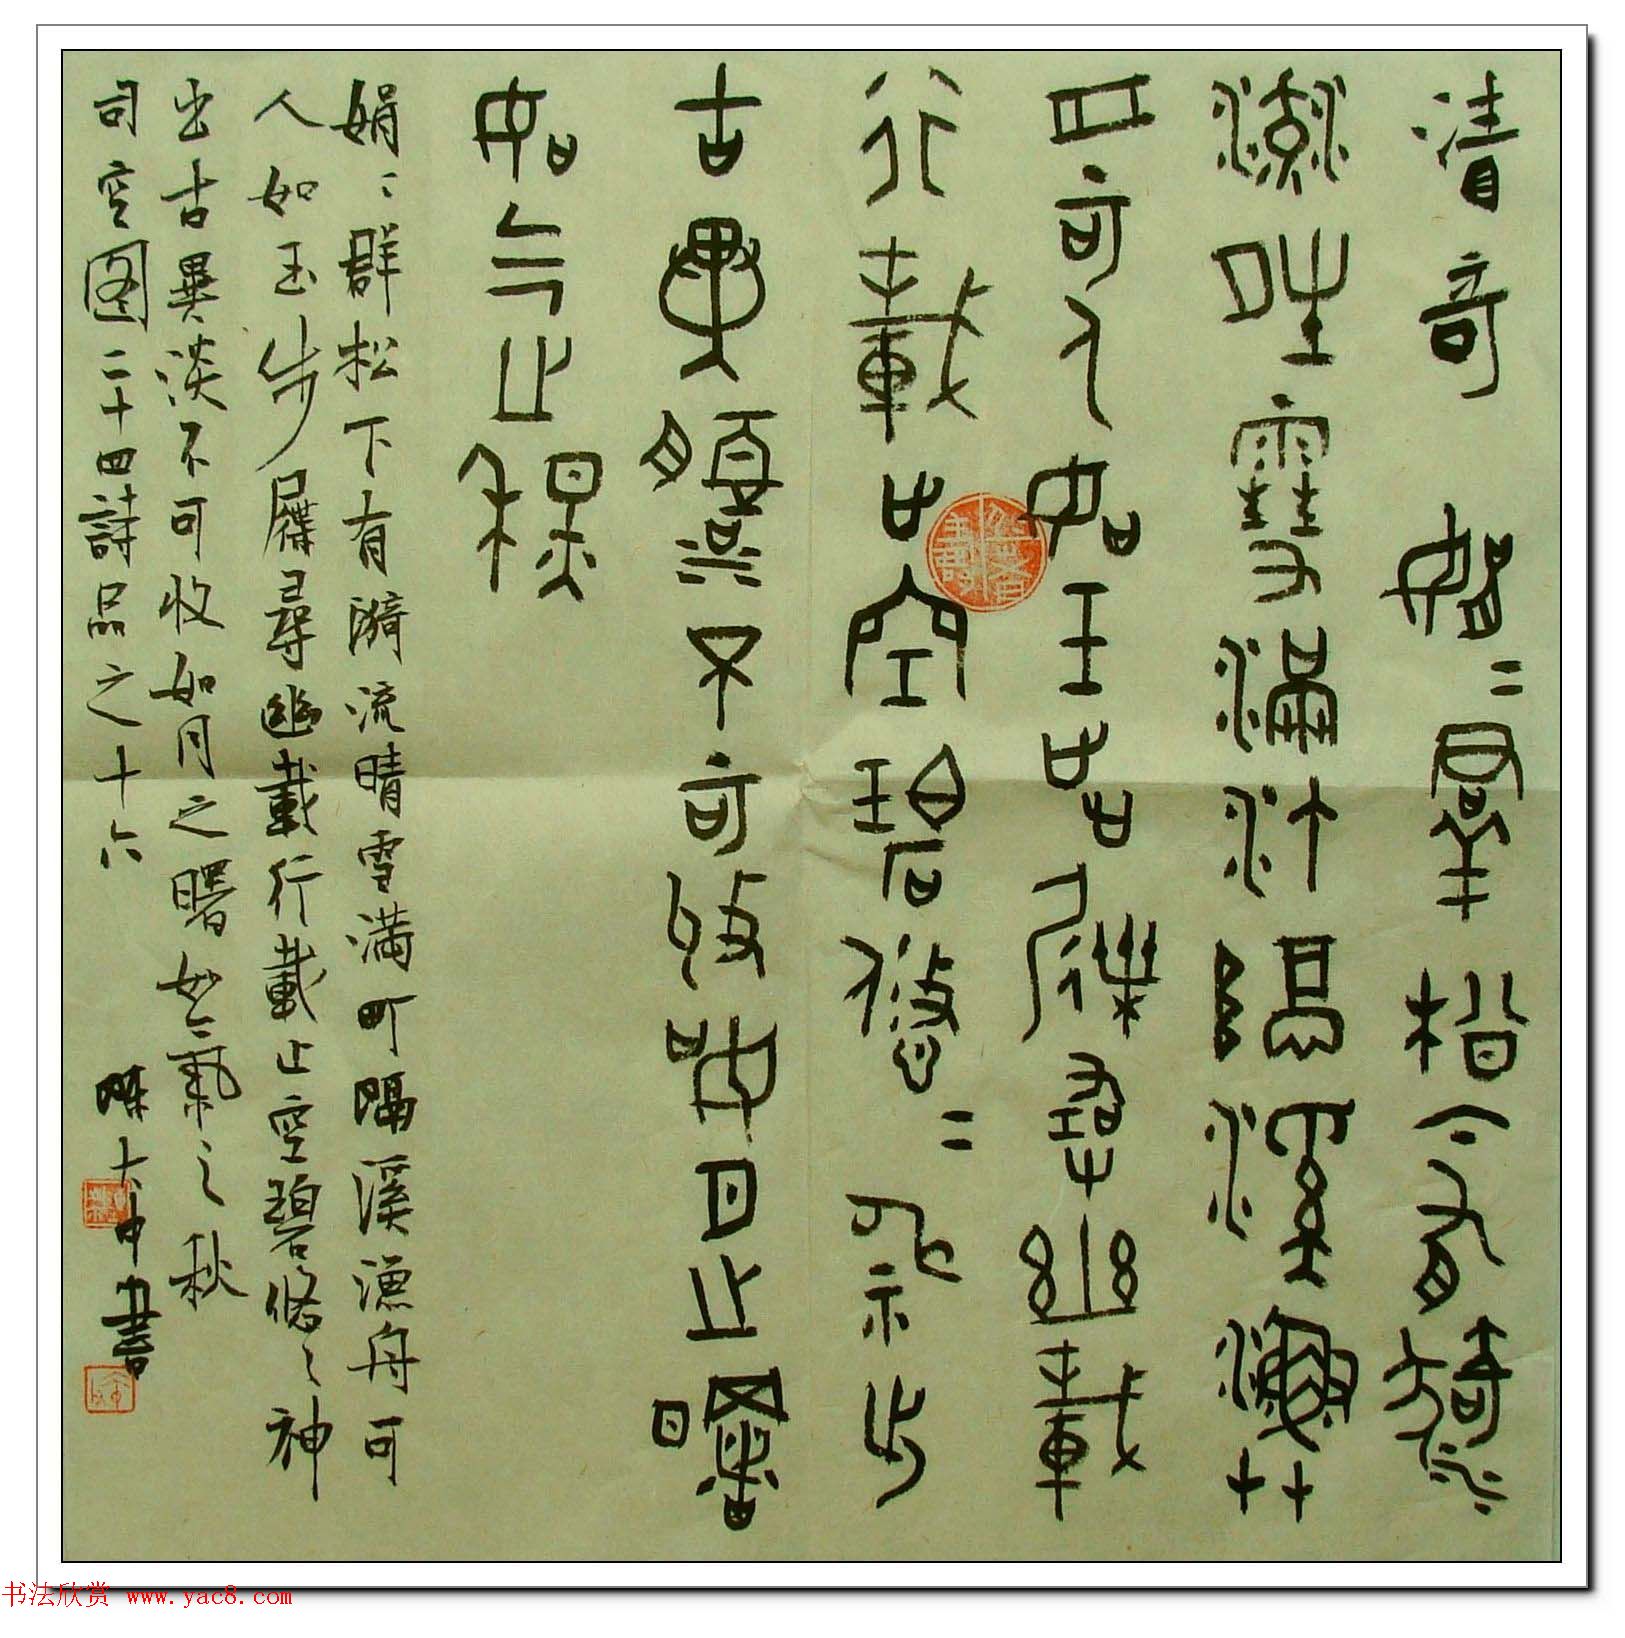 清奇 娟〻群松下有漪
流晴雪滿汀隔溪漁
舟可人如玉步屧尋幽載
行載止空碧悠〻神出
古異淡不可收如月之曙
如氣之秋
娟〻群松下有漪流晴雪满町隔溪漁舟可
人如玉步屧尋幽載行載止空碧悠〻神
出古異淡不可收如月之曙如氣之秋
司空图二十四詩品之十六 陳大中書
书法欣赏 www.yac8.com